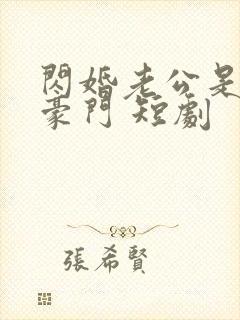 閃婚老公是
豪門 短劇
張希賢